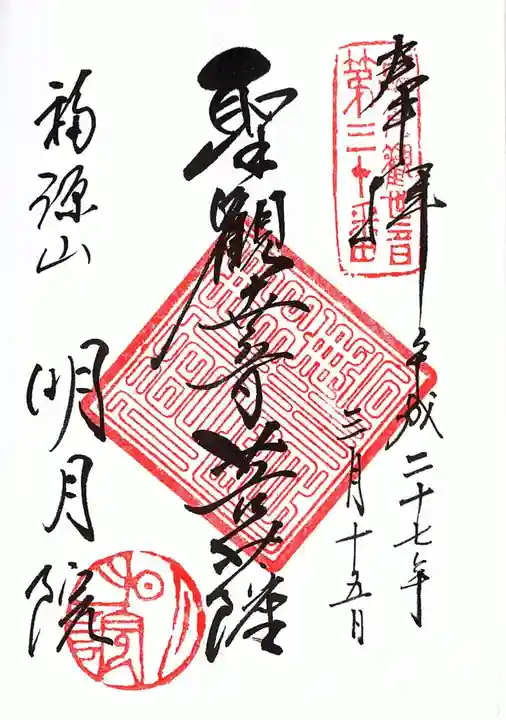 奉拝
平成二十七年
三月十五日
観世音
第三十番
聖觀世音菩薩
福源山
明月院